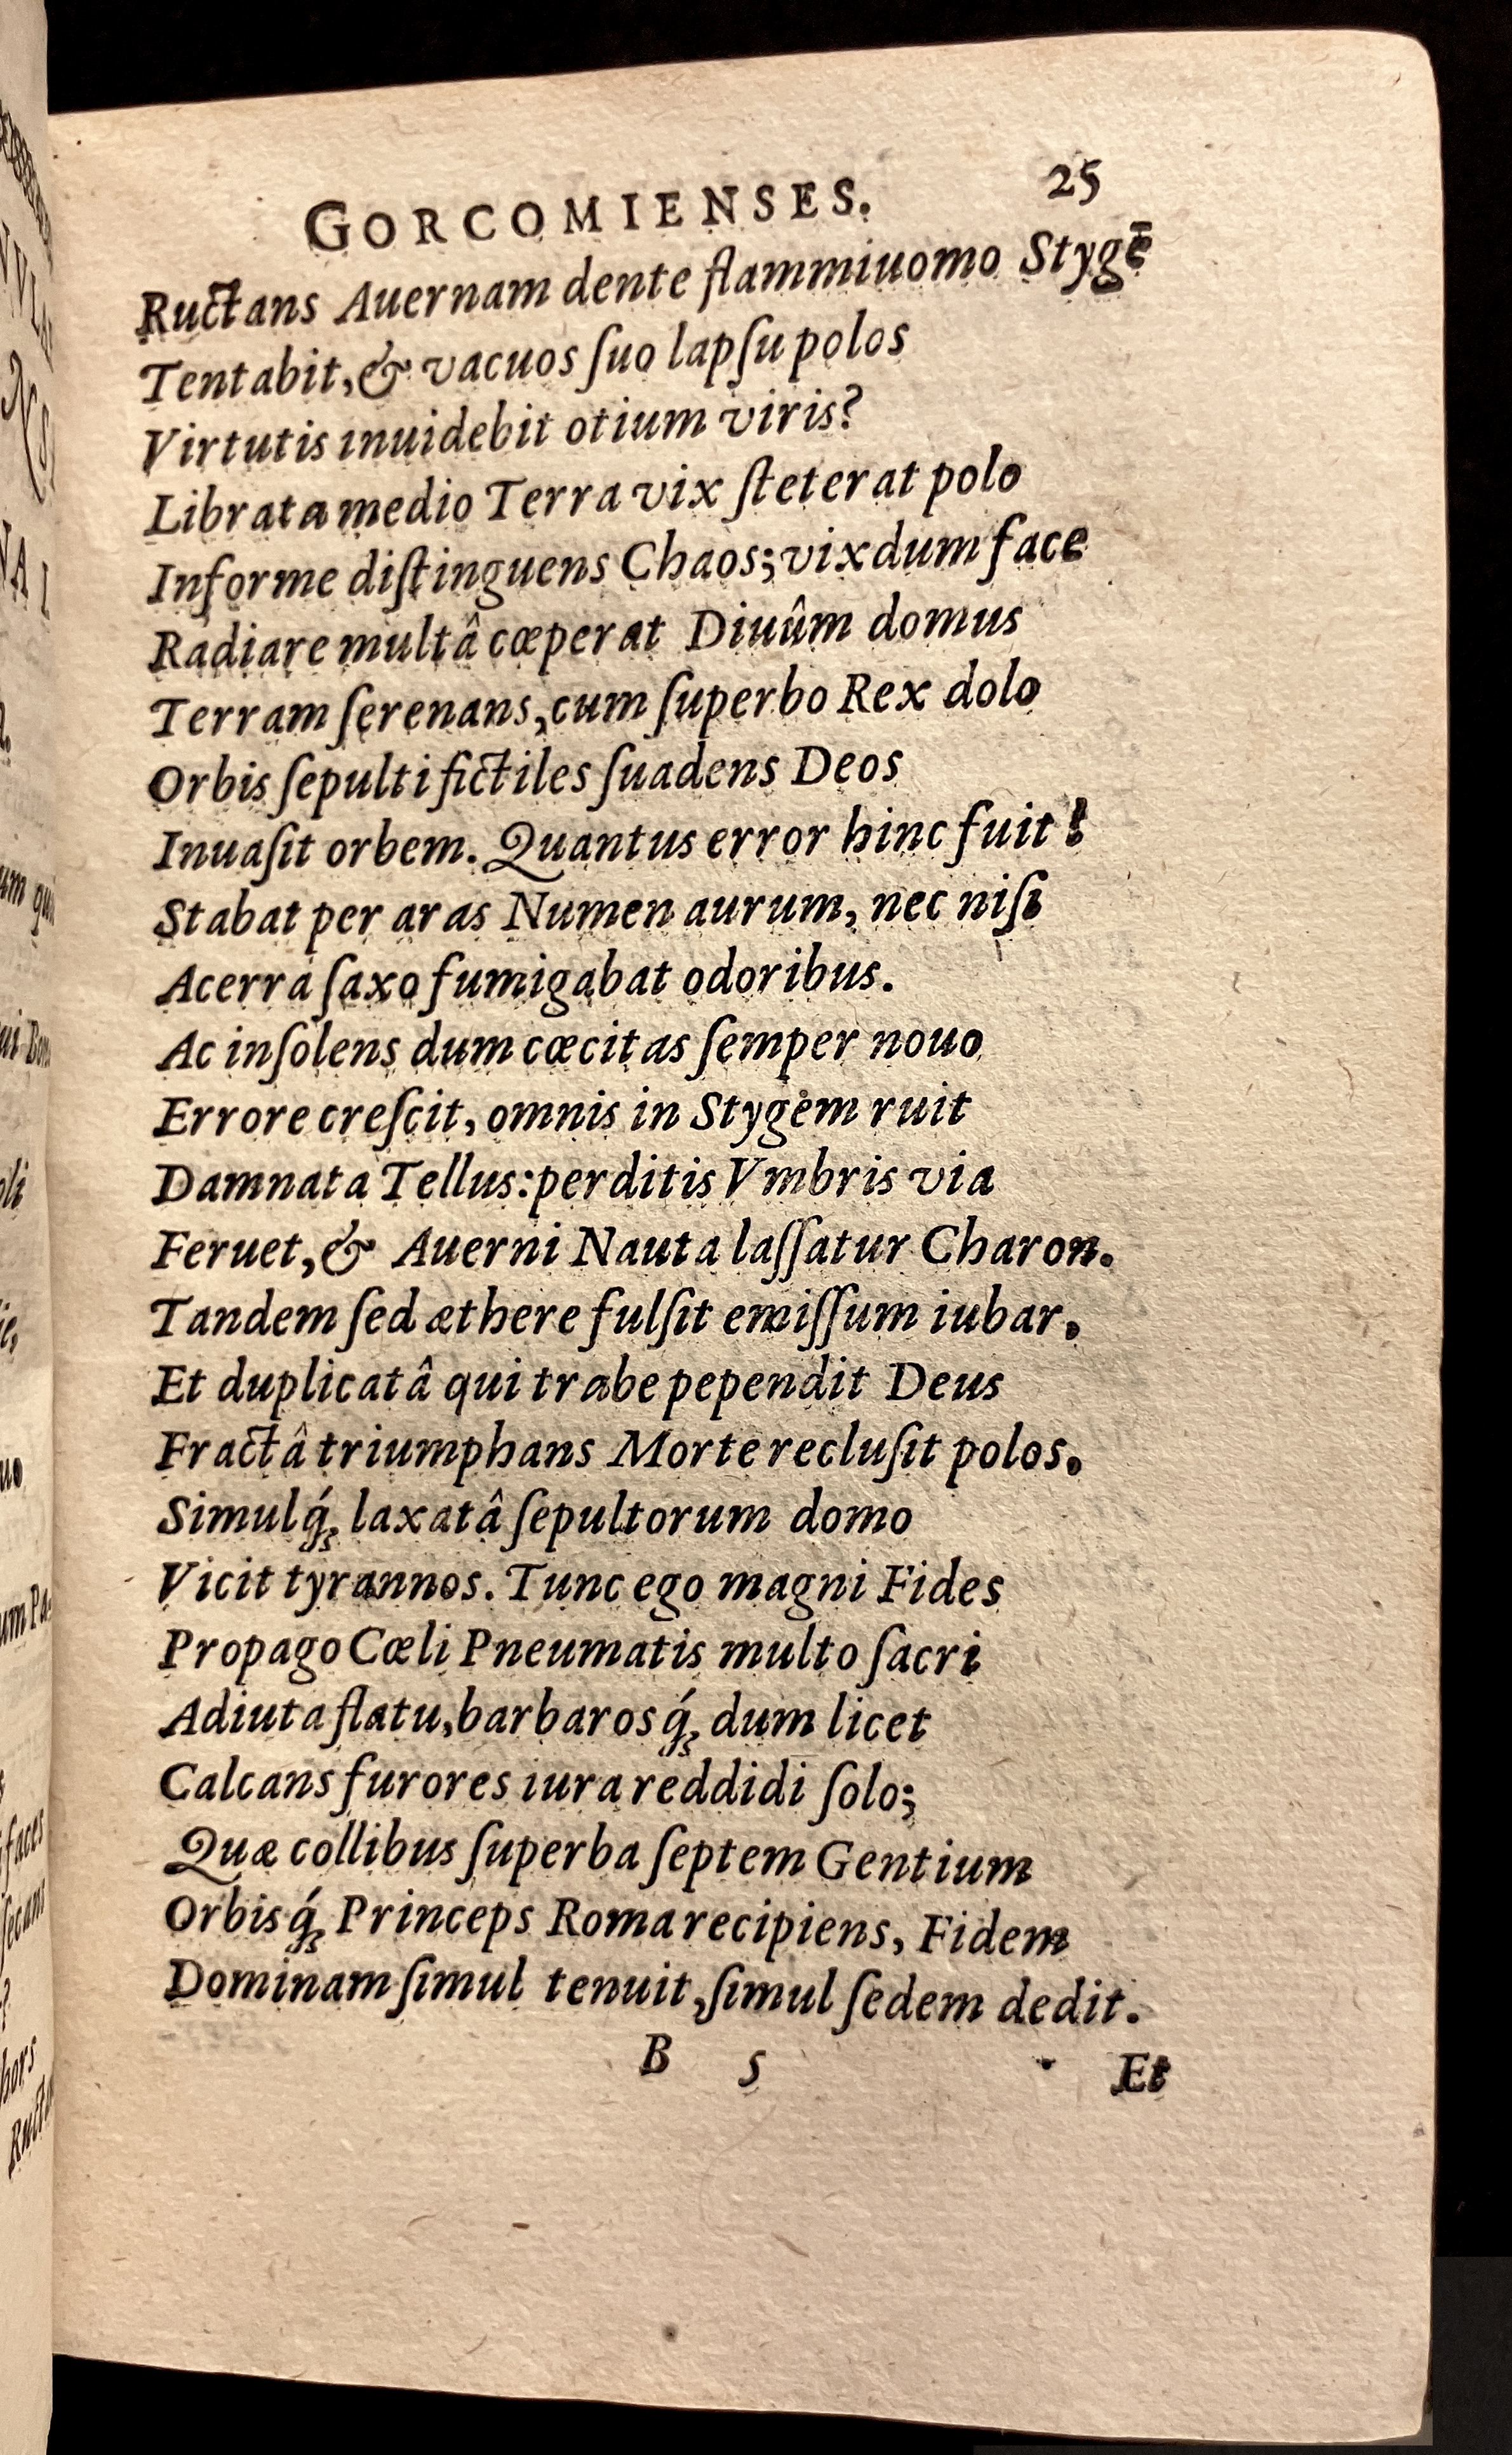 GORCOMIENSES. 25
Ructans Auernam dente flammiuomo Stygē
Tentabit, & vacuos ſuo lapſu polos
Virtutis inuidebit otium viris?
Librata medio Terra vix ſteterat polo
Informe diſtinguens Chaos; vixdum face
Radiare multâ cœperat Diuûm domus
Terram ſerenans, cum ſuperbo Rex dolo
Orbis ſepulti fictiles ſuadens Deos
Inuaſit orbem. Quantus error hinc fuit!
Stabat per aras Numen aurum, nec niſi
Acerra ſaxo fumigabat odoribus.
Ac inſolens dum cœcitas ſemper nouo
Errore creſcit, omnis in Stygem ruit
Damnata Tellus: perditis Vmbris via
Feruet, & Auerni Nauta laſſatur Charon.
Tandem ſed æthere fulſit emiſſum iubar.
Et duplicatâ qui trabe pependit Deus
Fractâ triumphans Morte recluſit polos.
Simulq́ꝫ laxatâ ſepultorum domo
Vicit tyrannos. Tunc ego magni Fides
Propago Cœli Pneumatis multo ſacri
Adiuta flatu, barbarosq́ꝫ dum licet
Calcans furores iura reddidi ſolo;
Quæ collibus ſuperba ſeptem Gentium
Orbisq́ꝫ Princeps Roma recipiens, Fidem
Dominam ſimul tenuit, ſimul ſedem dedit.
B 5 Et